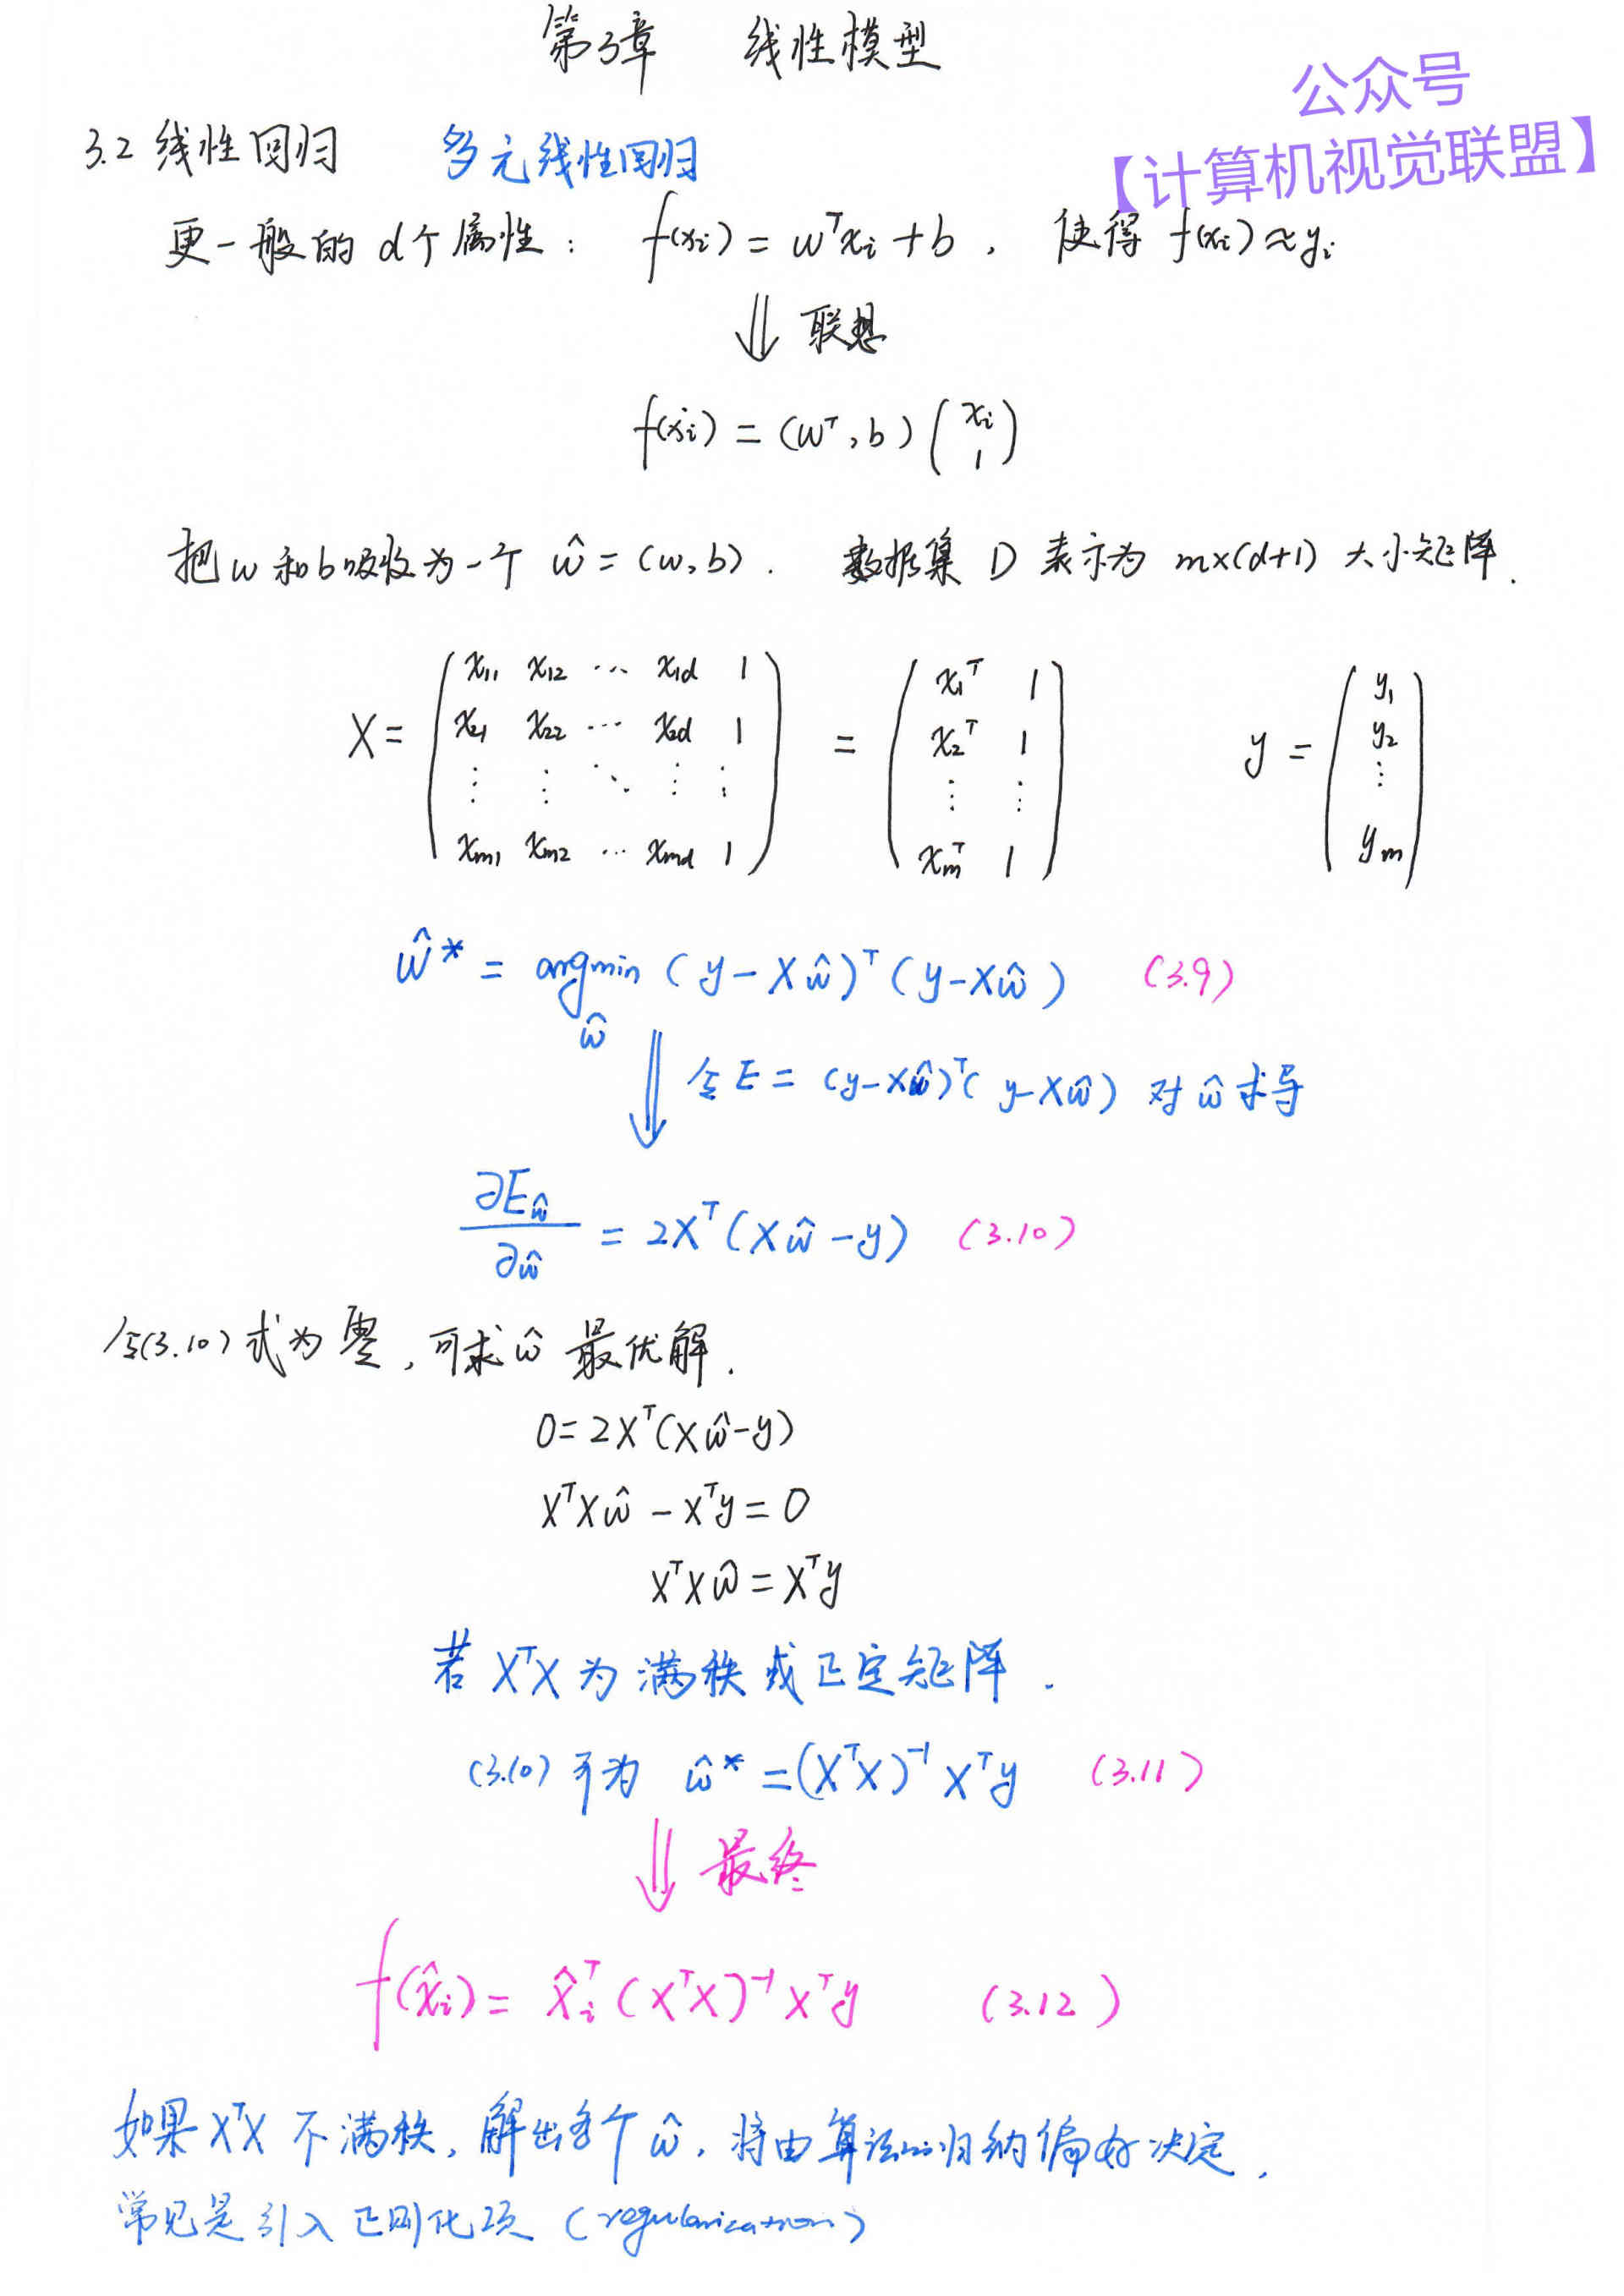 第3章 线性模型
公众号
【计算机视觉联盟】
3.2 线性回归 多元线性回归
更一般的 d个属性: f(xᵢ) = wᵀxᵢ + b , 使得 f(xᵢ) ≈ yᵢ
⇓ 联想
f(xᵢ) = (wᵀ, b) (xᵢ
1)
把 w 和 b 吸收为一个 ŵ = (w, b) . 数据集 D 表示为 m×(d+1) 大小矩阵.
X = ( x₁₁ x₁₂ ⋯ x₁d 1 = ( x₁ᵀ 1 y = ( y₁
x₂₁ x₂₂ ⋯ x₂d 1 x₂ᵀ 1 y₂
⋮ ⋮ ⋱ ⋮ ⋮ ⋮ ⋮ ⋮
xm₁ xm₂ ⋯ xmd 1 ) xmᵀ 1 ) ym )
ŵ* = argmin (y - Xŵ)ᵀ (y - Xŵ) (3.9)
ŵ
⇓ 令 E = (y - Xŵ)ᵀ (y - Xŵ) 对 ŵ 求导
∂Eŵ / ∂ŵ = 2Xᵀ(Xŵ - y) (3.10)
令(3.10)式为零, 可求 ŵ 最优解.
0 = 2Xᵀ(Xŵ - y)
XᵀXŵ - Xᵀy = 0
XᵀXŵ = Xᵀy
若 XᵀX 为满秩或正定矩阵.
(3.10) 可为 ŵ* = (XᵀX)⁻¹Xᵀy (3.11)
⇓ 最终
f(x̂ᵢ) = x̂ᵢᵀ(XᵀX)⁻¹Xᵀy (3.12)
如果 XᵀX 不满秩, 解出多个 ŵ, 将由算法的归纳偏好决定,
常见是引入正则化项 (regularization)